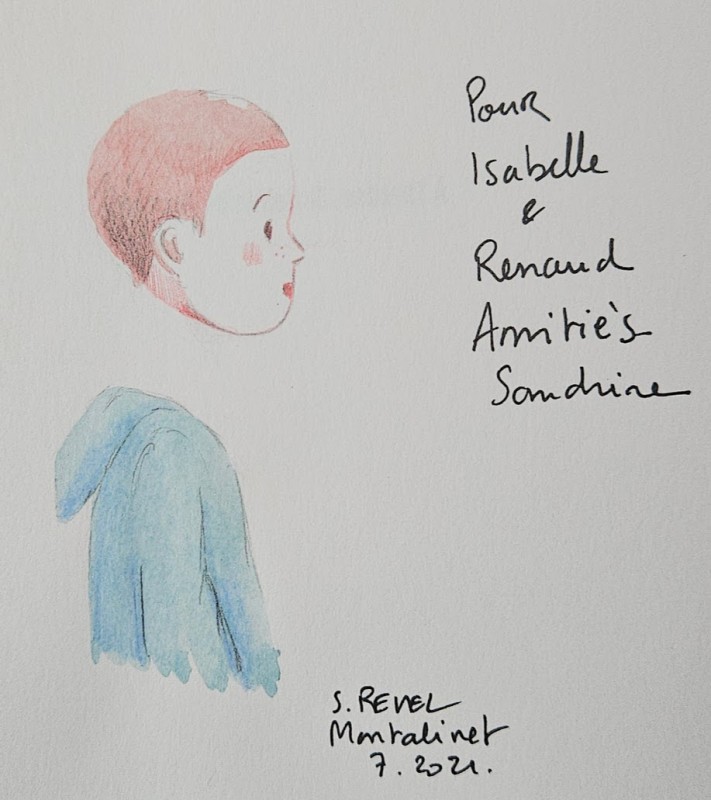 Pour
Isabelle
&
Renaud
Amitiés
Sandrine
S. REVEL
Montalinet
7. 2021.